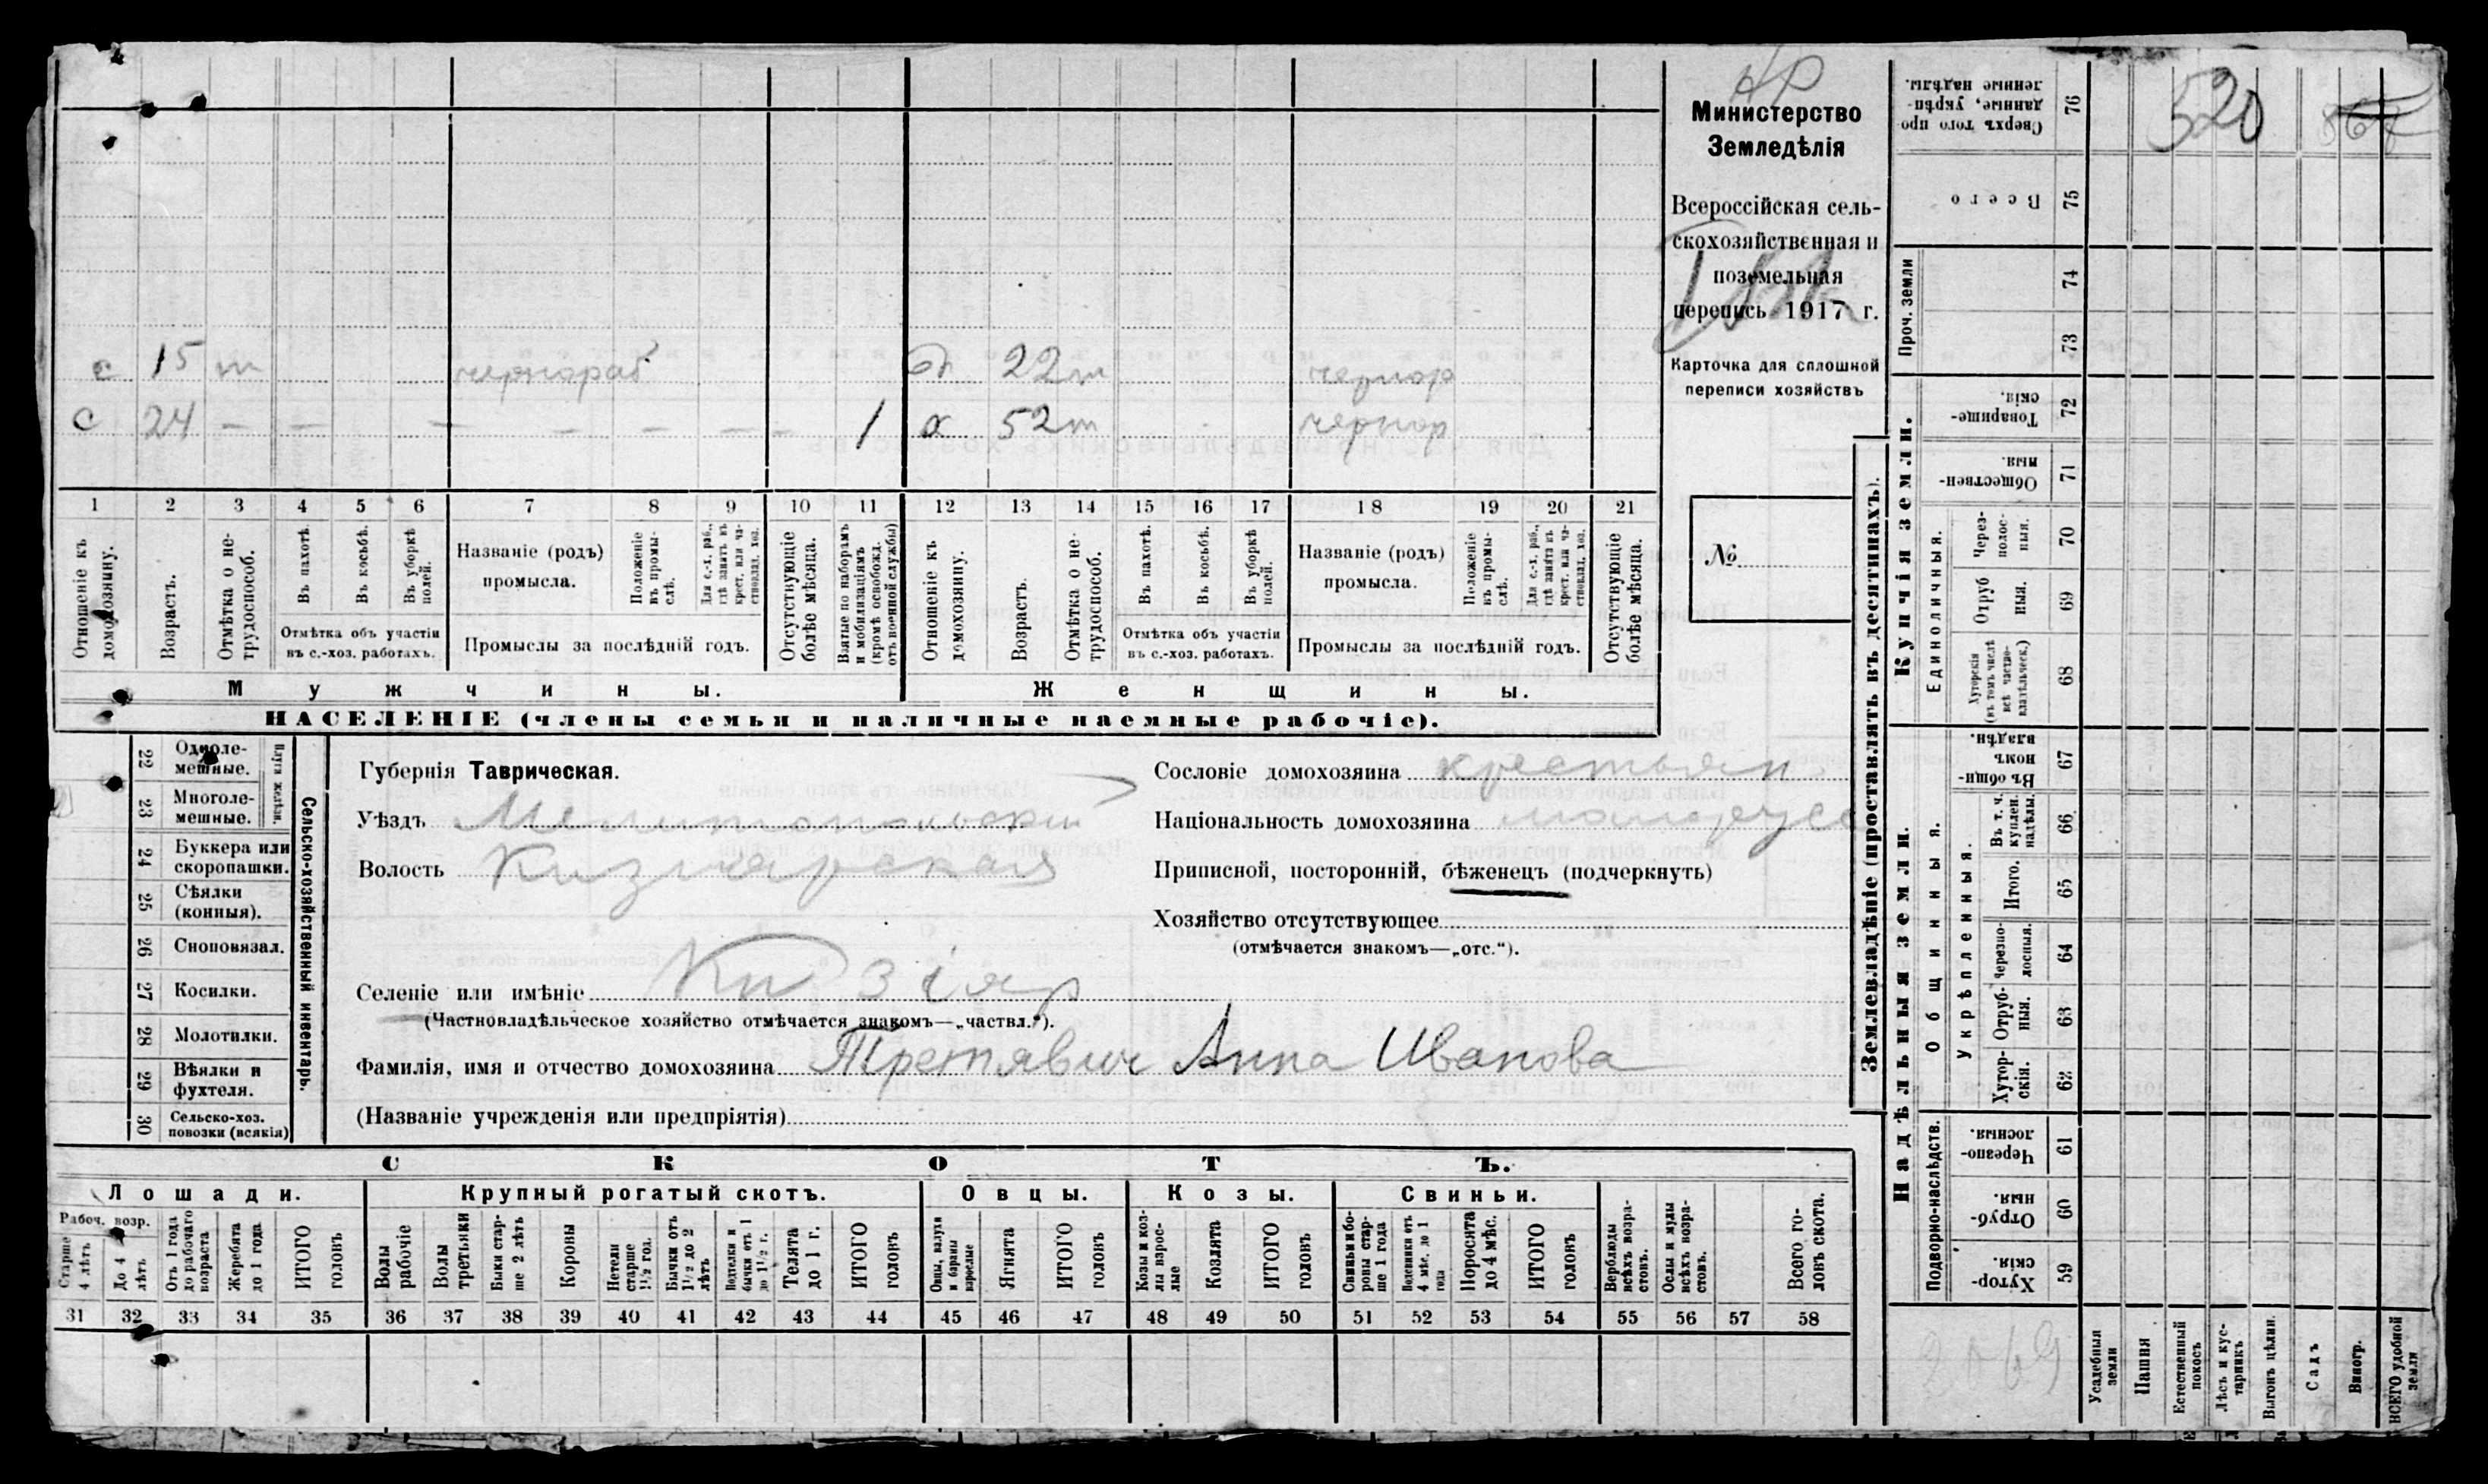 Министерство
Земледѣлія
Всероссійская сель-
скохозяйственная и
поземельная
перепись 1917 г.
Карточка для сплошной
переписи хозяйствъ
№
520
с 15 т чернораб д 22 т чернор
с 24 – – – – – – – 1 х 52 т чернор
1 2 3 4 5 6 7 8 9 10 11 12 13 14 15 16 17 18 19 20 21
Отношеніе къ домохозяину.
Возрастъ.
Отмѣтка о не-трудоспособ.
Въ пахотѣ.
Въ косьбѣ.
Въ уборкѣ полей.
Отмѣтка объ участіи
въ с.-хоз. работахъ.
Названіе (родъ)
промысла.
Положеніе въ промы-слѣ.
Для с.-х. раб., гдѣ занятъ въ крест. или ча-стновлад. хоз.
Промыслы за послѣдній годъ.
Отсутствующіе болѣе мѣсяца.
Взятые по наборамъ и мобилизаціямъ (кромѣ освобожд. отъ военной службы)
Отношеніе къ домохозяину.
Возрастъ.
Отмѣтка о не-трудоспособ.
Въ пахотѣ.
Въ косьбѣ.
Въ уборкѣ полей.
Отмѣтка объ участіи
въ с.-хоз. работахъ.
Названіе (родъ)
промысла.
Положеніе въ промы-слѣ.
Для с.-х. раб., гдѣ занята въ крест. или ча-стновлад. хоз.
Промыслы за послѣдній годъ.
Отсутствующіе болѣе мѣсяца.
Мужчины. Женщины.
НАСЕЛЕНІЕ (члены семьи и наличные наемные рабочіе).
Сельско-хозяйственный инвентарь.
Плуги желѣзн.
22 Одноле-мешные.
23 Многоле-мешные.
24 Буккера или скоропашки.
25 Сѣялки (конныя).
26 Сноповязал.
27 Косилки.
28 Молотилки.
29 Вѣялки и фухтеля.
30 Сельско-хоз. повозки (всякія)
Губернія Таврическая.
Уѣздъ Мелитопольскій
Волость Кизіярская
Селеніе или имѣніе Кизіяр
(Частновладѣльческое хозяйство отмѣчается знакомъ—„частвл.“).
Фамилія, имя и отчество домохозяина Третявич Анна Иванова
(Названіе учрежденія или предпріятія)
Сословіе домохозяина крестьян
Національность домохозяина малорусс
Приписной, посторонній, бѣженецъ (подчеркнуть)
Хозяйство отсутствующее
(отмѣчается знакомъ—„отс.“).
СКОТЪ.
Лошади. Крупный рогатый скотъ. Овцы. Козы. Свиньи.
Рабоч. возр.
Старше 4 лѣтъ
До 4 лѣтъ
Отъ 1 года до рабочаго возраста
Жеребята до 1 года
ИТОГО головъ
Волы рабочіе
Волы третьяки
Быки стар-ше 2 лѣтъ
Коровы
Нетели старше 1½ год.
Бычки отъ 1½ до 2 лѣтъ
Подтелки и бычки отъ 1 до 1½ г.
Телята до 1 г.
ИТОГО головъ
Овцы, валухи и бараны взрослые
Ягнята
ИТОГО головъ
Козы и коз-лы взрос-лые
Козлята
ИТОГО головъ
Свиньи и бо-ровы стар-ше 1 года
Подсвинки отъ 4 мѣс. до 1 года
Поросята до 4 мѣс.
ИТОГО головъ
Верблюды всѣхъ возра-стовъ.
Ослы и мулы всѣхъ возра-стовъ.
Всего го-ловъ скота.
31 32 33 34 35 36 37 38 39 40 41 42 43 44 45 46 47 48 49 50 51 52 53 54 55 56 57 58
Землевладѣніе (проставлять въ десятинахъ).
Купчія земли.
Надѣльныя земли.
Сверхъ того про-данные, укрѣп-ленные надѣлы. 76
Всего 75
Проч. земли
74
73
Товарище-скія. 72
Обществен-ныя. 71
Единоличныя.
Через-полос-ныя. 70
Отруб-ныя. 69
Хуторскія (въ томъ числѣ всѣ частно-владѣльческ.) 68
Общинныя.
Въ общин-номъ владѣн. 67
Укрѣпленныя.
Въ т. ч. куплен. надѣлы. 66
Итого. 65
Черезпо-лосныя. 64
Отруб-ныя. 63
Хутор-скія. 62
Подворно-наслѣдств.
Черезпо-лосныя. 61
Отруб-ныя. 60
Хутор-скія. 59
Усадебныя земли
Пашня
Естественный покосъ
Лѣсъ и кус-тарникъ
Выгонъ цѣлин.
Садъ
Виногр.
ВСЕГО удобной земли